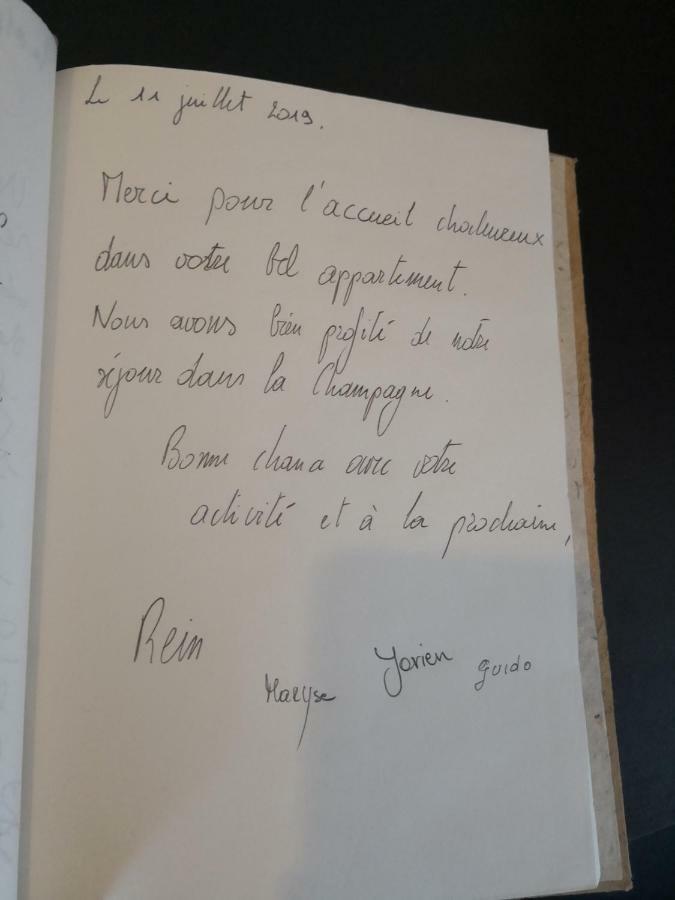 Le 11 juillet 2019.
Merci pour l'accueil chaleureux
dans votre bel appartement.
Nous avons bien profité de notre
séjour dans la Champagne.
Bonne chance avec votre
activité et à la prochaine,
Rein
Maryse
Jorien
guido